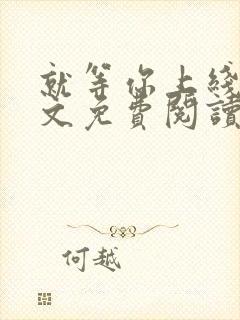 就等你上线
文免费阅读
何越